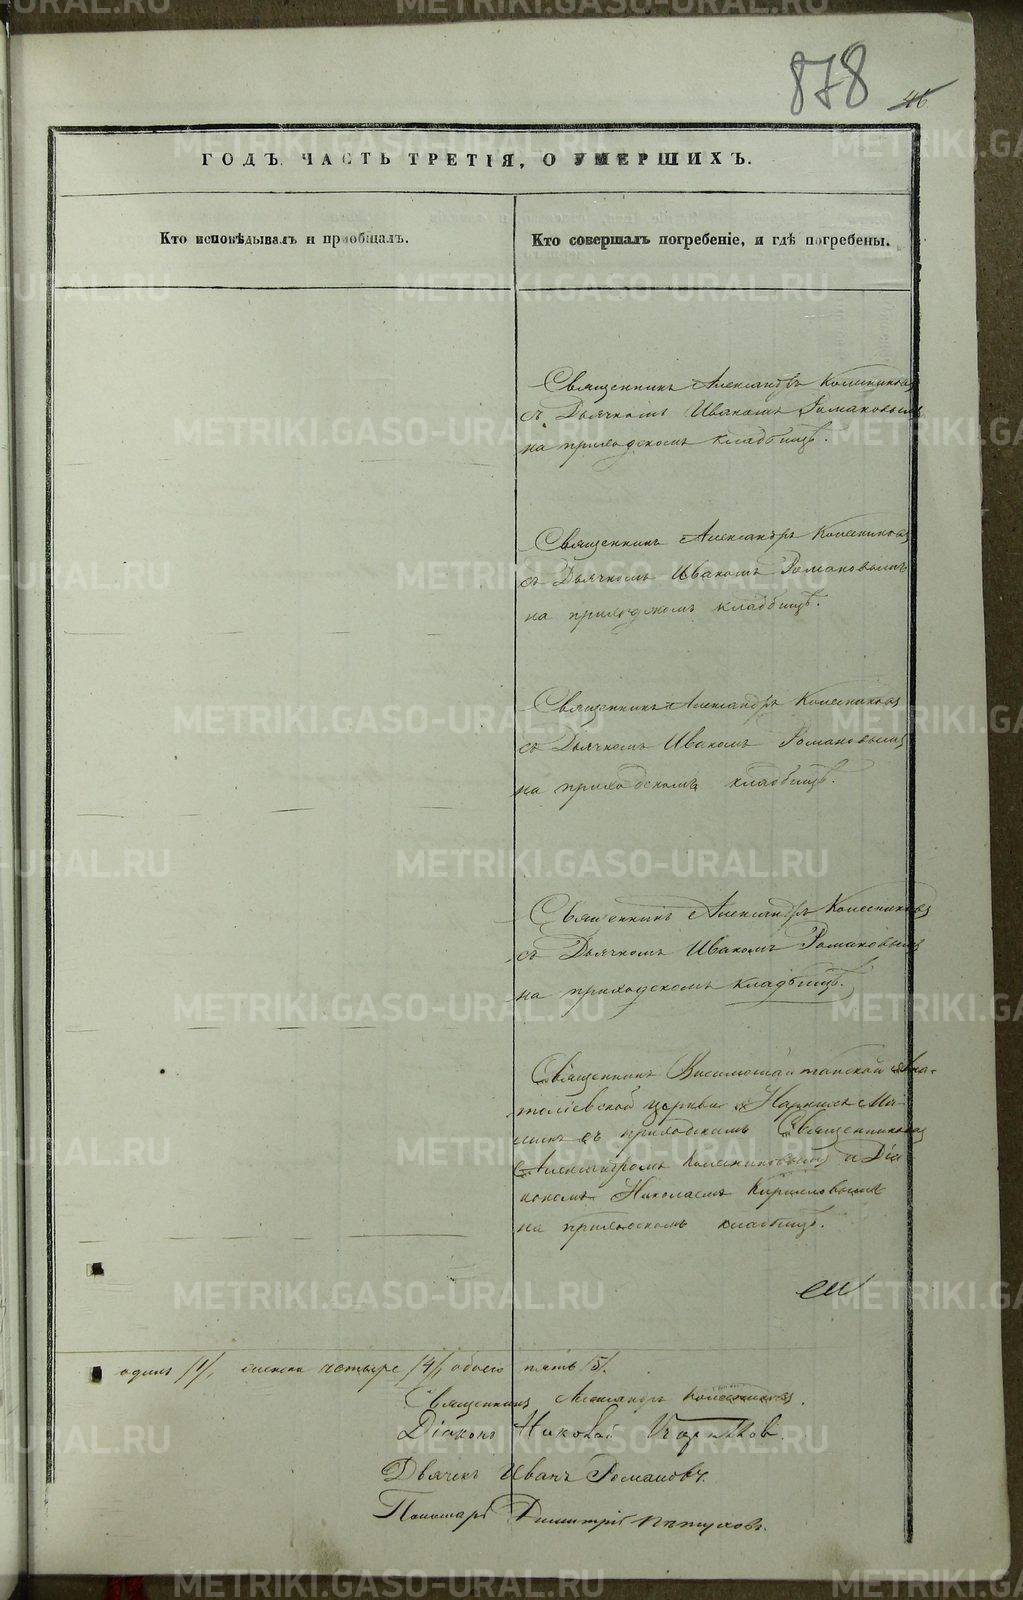 878
46
ГОДЪ. ЧАСТЬ ТРЕТІЯ, О УМЕРШИХЪ.
Кто исповѣдывалъ и пріобщалъ.
Кто совершалъ погребеніе, и гдѣ погребены.
Священникъ Александръ Колесниковъ
съ Дьячкомъ Иваномъ Романовымъ
на приходскомъ кладбищѣ.
Священникъ Александръ Колесниковъ
съ Дьячкомъ Иваномъ Романовымъ
на приходскомъ кладбищѣ.
Священникъ Александръ Колесниковъ
съ Дьячкомъ Иваномъ Романовымъ
на приходскомъ кладбищѣ.
Священникъ Александръ Колесниковъ
съ Дьячкомъ Иваномъ Романовымъ
на приходскомъ кладбищѣ.
Священникъ Висимошайтанской Ана-
толіевской церкви Наркисъ Ма-
минъ съ приходскимъ Священникомъ
Александромъ Колесниковымъ и Діа
кономъ Николаемъ Кирилловымъ
на приходскомъ кладбищѣ.
одинъ /1/, женска четыре /4/, обоего пять /5/.
Священникъ Александръ Колесниковъ.
Діаконъ Николай
Дьячекъ Иванъ Романовъ.
Пономарь Димитрій Пѣтуховъ.
METRIKI.GASO-URAL.RU